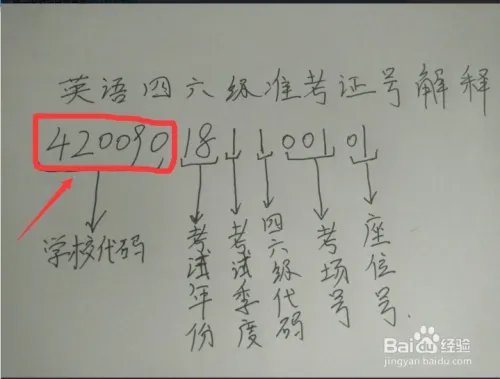 英语四六级准考证号解释
420090 18 1 1 001 01
学校代码
考试年份
考试季度
四六级代码
考场号
座位号.
Baidu经验